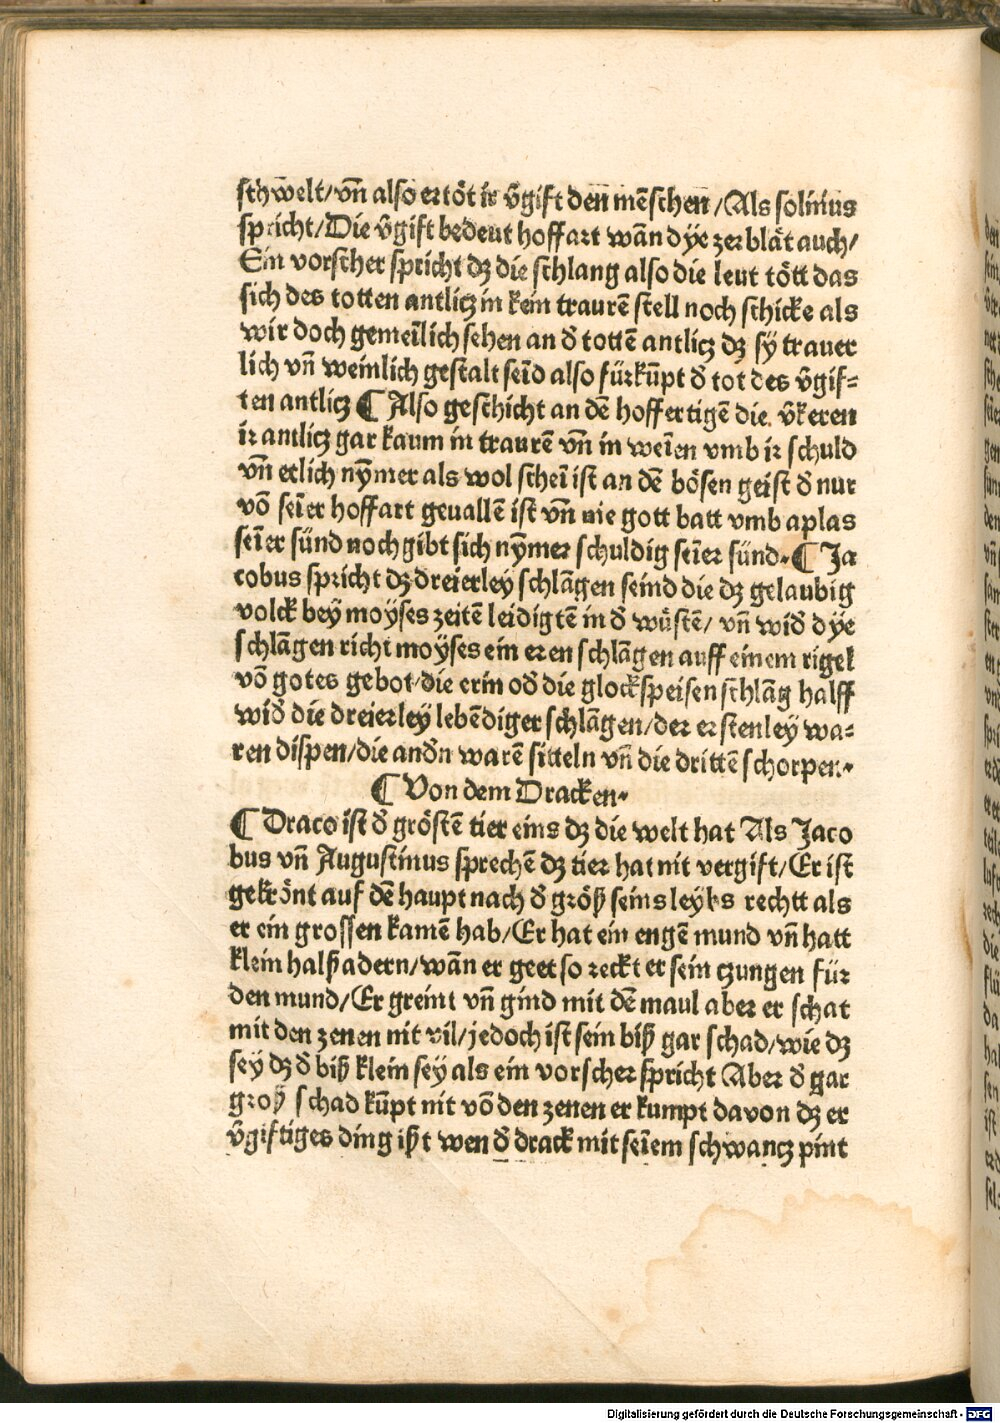 schwelt/vn̄ also ertöt ir v̄gift den menschē/Als solinius
spricht/Die v̄gift bedeut hoffart wān dÿe zerblät auch/
Ein vorscher spricht dʒ die schlang also die leut tött das
sich des totten antlicʒ in kein traurē stell noch schicke als
wir doch gemeīlich sehen an d̄ tottē antlicʒ dʒ sÿ trauer
lich vn̄ weinlich gestalt seīd also fürkūpt d̄ tot des v̄gif⸗
ten antlicʒ ¶ Also geschicht an dē hoffertigē die v̄keren
ir antlicʒ gar kaum in traurē vn̄ in weīen vmb ir schuld
vn̄ etlich nȳmer als wol scheī ist an dē bösen geist d̄ nur
vō seīer hoffart geuallē ist vn̄ nie gott batt vmb aplas
seīer sünd noch gibt sich nȳmer schuldig seīer sünd. ¶ Ja
cobus spricht dʒ dreierleÿ schlāgen seind die dʒ gelaubig
volck beÿ moÿses zeitē leidigtē in d̄ wüstē/ vn̄ wid̄ dÿe
schlāgen richt moÿses ein eren schlāgen auff einem rigel
vō gotes gebot/die erin od̄ die glockspeisen schlāg halff
wid̄ die dreierleÿ lebēdiger schlāgen/der erstenleÿ wa⸗
ren dispen/die andn̄ warē sitteln vn̄ die drittē schorpen.
¶ Von dem Dracken.
¶ Draco ist d̄ gröstē tier eins dʒ die welt hat Als Jaco
bus vn̄ Augustinus sprechē dʒ tier hat nit vergift/Er ist
gekrönt auf dē haupt nach d̄ größ seins leybs rechtt als
er ein grossen kamē hab/Er hat ein engē mund vn̄ hatt
klein halßadern/wān er geet so reckt er sein czungen für
den mund/Er greint vn̄ gind mit dē maul aber er schat
mit den zenen nit vil/jedoch ist sein biß gar schad/wie dʒ
sey dʒ d̄ biß klein sey als ein vorscher spricht Aber d̄ gar
groß schad kūpt nit vō den zenen er kumpt davon dʒ er
v̄giftiges ding ißt wen d̄ drack mit seīem schwancʒ pint
Digitalisierung gefördert durch die Deutsche Forschungsgemeinschaft - DFG